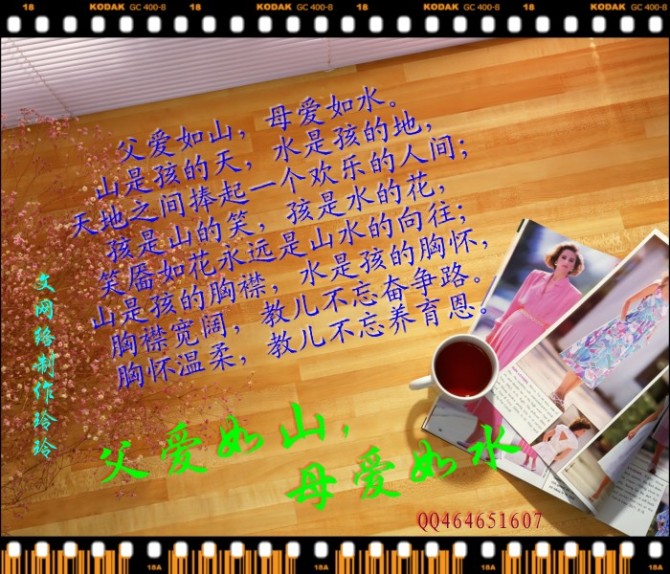 18 KODAK GC 400-8 18 KODAK GC 400-8 18 KODAK GC 400-8 18 KODAK GC 400-8
父爱如山，母爱如水。
山是孩的天，水是孩的地，
天地之间捧起一个欢乐的人间；
孩是山的笑，孩是水的花，
笑靥如花永远是山水的向往；
山是孩的胸襟，水是孩的胸怀，
胸襟宽阔，教儿不忘奋争路。
胸怀温柔，教儿不忘养育恩。
文网络制作玲玲
父爱如山，
母爱如水
QQ464651607
18A 18 18A 18 18A 18 18A